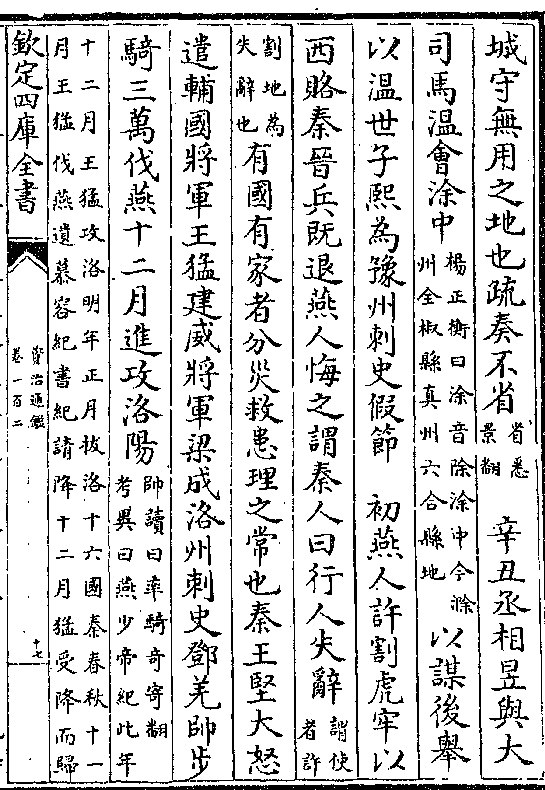 城守無用之地也疏奏不省省悉景翻 辛丑丞相昱與大
司馬溫會涂中楊正衡曰涂音除涂中今滁州全椒縣真州六合縣地以謀後舉
以溫世子熙為豫州刺史假節 初燕人許割虎牢以
西賂秦晉兵既退燕人悔之謂秦人曰行人失辭謂使者許
割地為失辭也有國有家者分災救患理之常也秦王堅大怒
遣輔國將軍王猛建威將軍梁成洛州刺史鄧羌帥步
騎三萬伐燕十二月進攻洛陽帥讀曰率騎奇寄翻考異曰燕少帝紀此年
十二月王猛攻洛明年正月拔洛十六國秦春秋十一
月王猛伐燕遺慕容紀書紀請降十二月猛受降而歸
欽定四庫全書
資治通鑑
卷一百二
十七